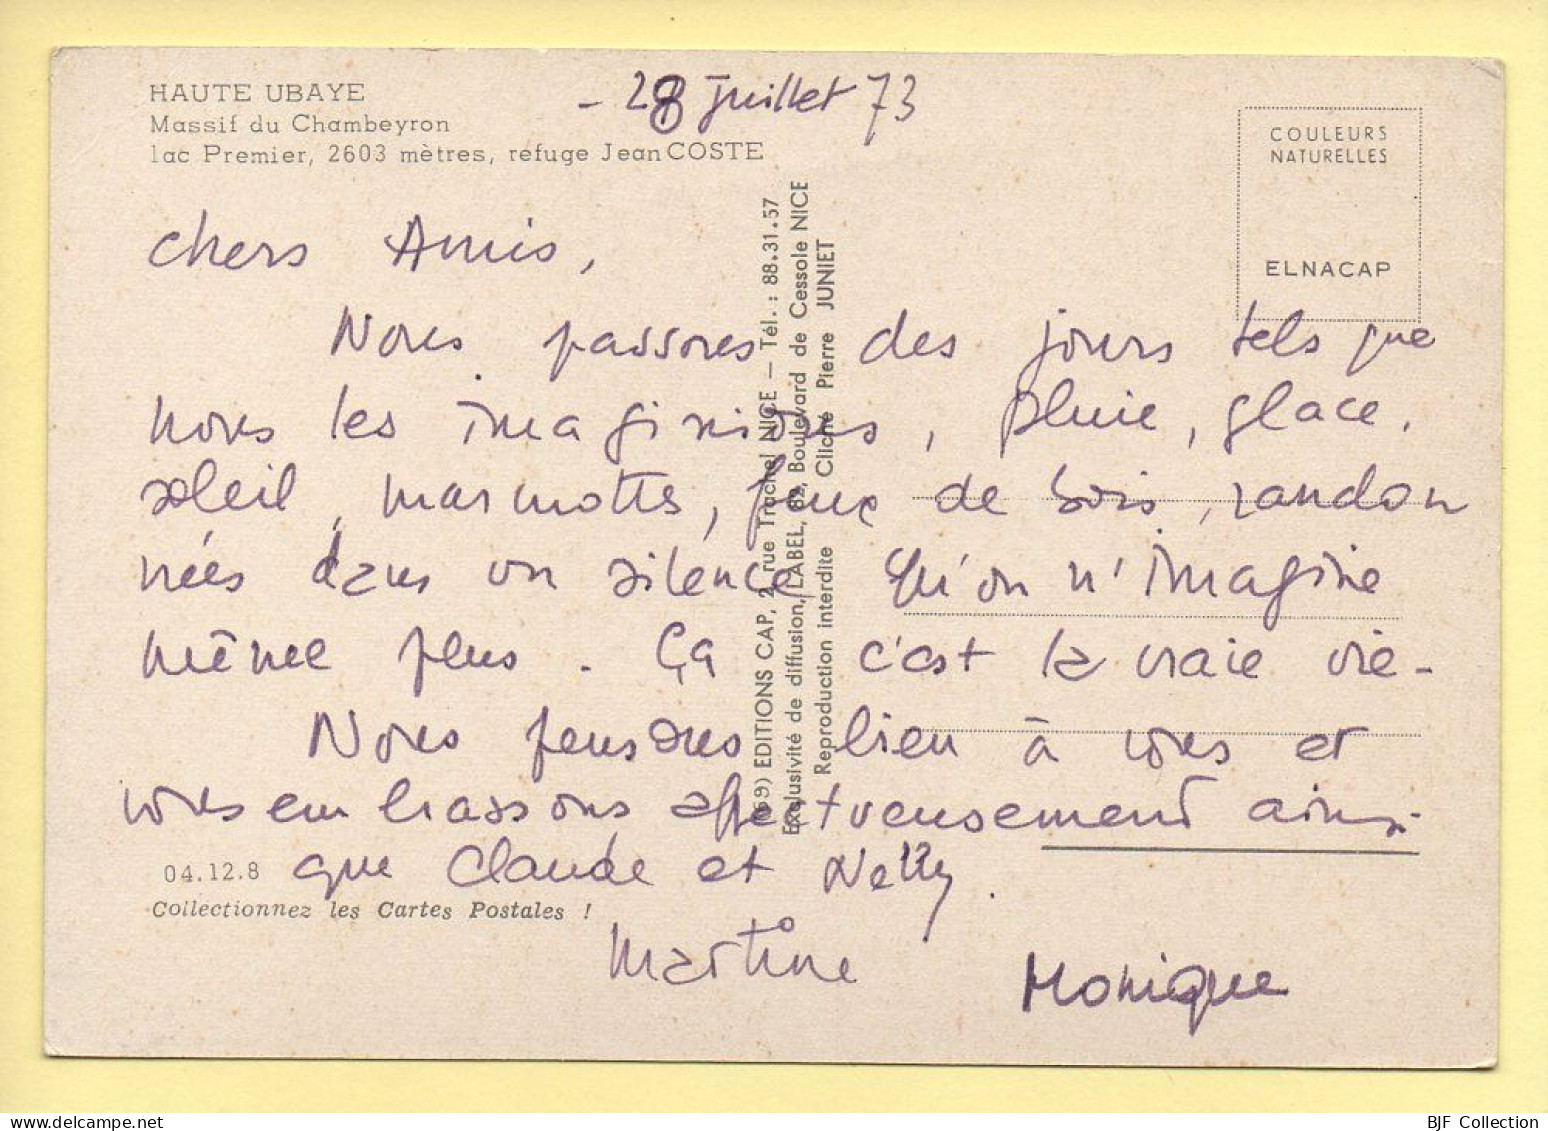 HAUTE UBAYE
Massif du Chambeyron
lac Premier, 2603 mètres, refuge Jean COSTE
- 28 Juillet 73
COULEURS
NATURELLES
ELNACAP
Chers Amis,
Nous passons des jours tels que
nous les imaginions, pluie, glace,
soleil, marmottes, feux de bois, randon
nées dans un silence qu'on n'imagine
même plus. Ça c'est la vraie vie -
Nous pensons bien à vous et
vous embrassons affectueusement ainsi
que Claude et Nelly.
Martine
Monique
04.12.8
Collectionnez les Cartes Postales !
(69) EDITIONS CAP, 2, rue Trachel NICE — Tél. : 88.31.57
Exclusivité de diffusion, LABEL, 62, Boulevard de Cessole NICE
Reproduction interdite Cliché Pierre JUNIET
BJF Collection